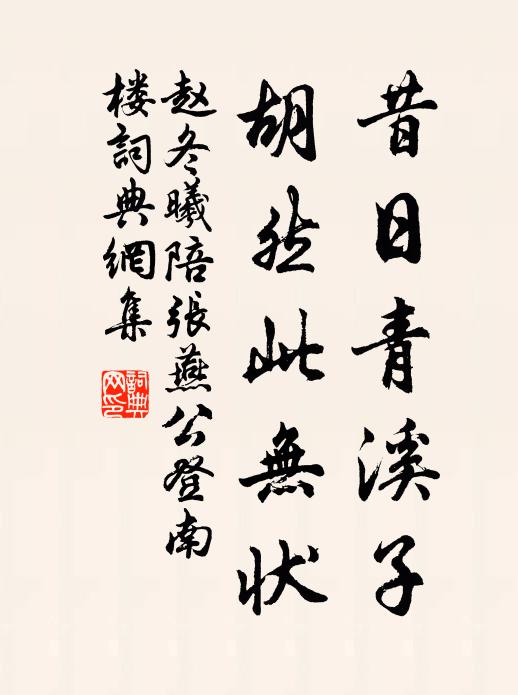 昔日青溪子
胡然此無状
赵冬曦陪張燕公登南
楼詞典網集
詞典网印